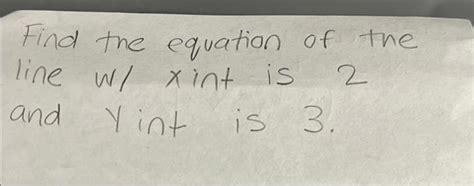 Find the equation of the
line w/ x int is 2
and Y int is 3.